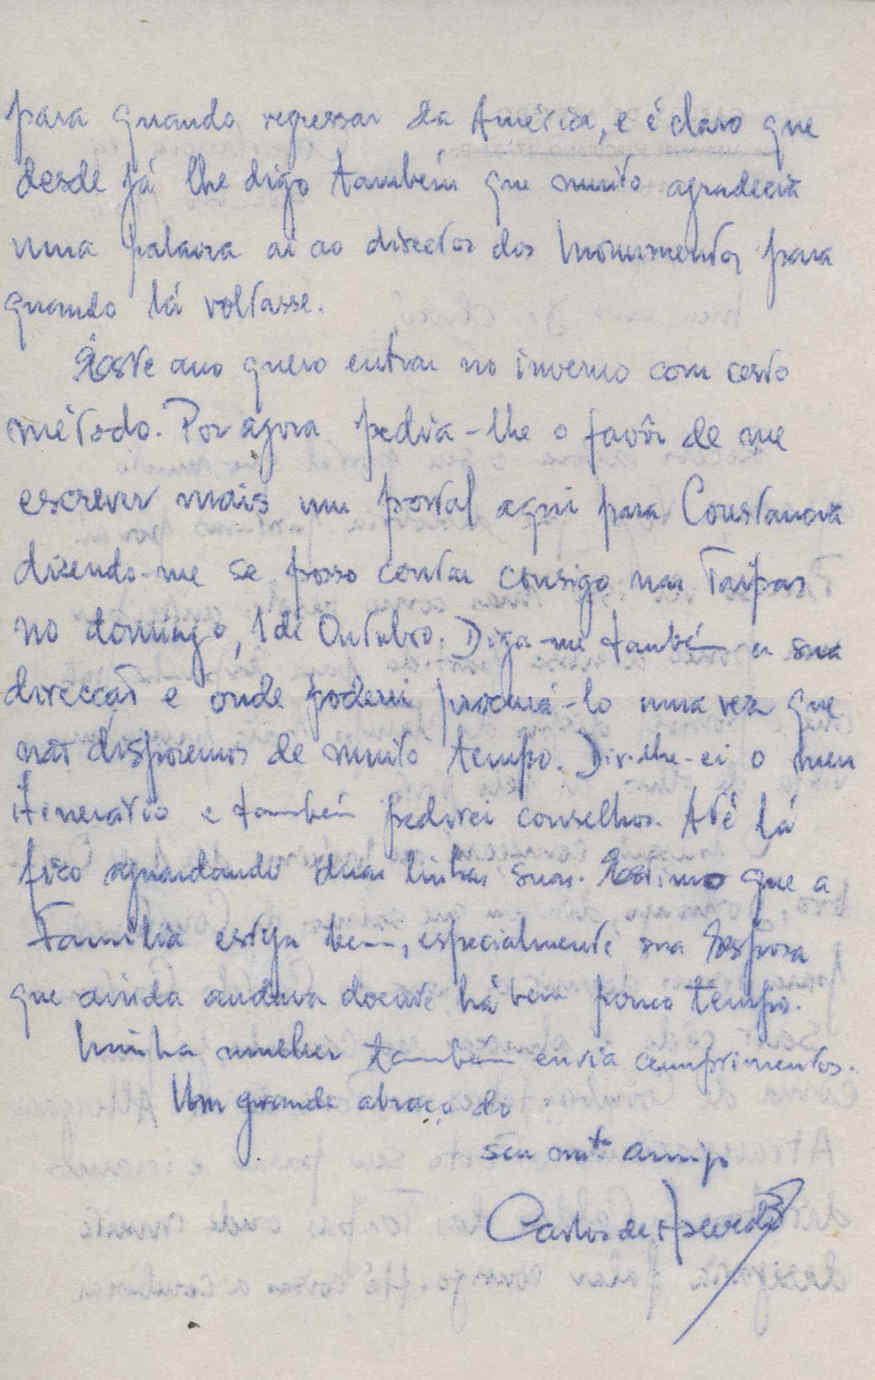 para quando regressar da América, e é claro que
desde já lhe digo também que muito agradecia
uma palavra aí ao director dos Monumentos para
quando lá voltasse.
Êste ano quero entrar no inverno com certo
método. Por agora pedia-lhe o favôr de me
escrever mais um postal aqui para Coustanova
dizendo-me se posso contar consigo nas Taipas
no domingo, 1 de Outubro. Diga-me também a sua
direcção e onde poderei procurá-lo uma vez que
não disporemos de muito tempo. Dir-lhe-ei o meu
itenerário e também pedirei conselhos. Até lá
fico aguardando duas linhas suas. Estimo que a
Família esteja bem, especialmente sua Esposa
que ainda andava doente há bem pouco tempo.
Minha mulher também envia cumprimentos.
Um grande abraço do
seu mto amigo
Carlos de Azevedo